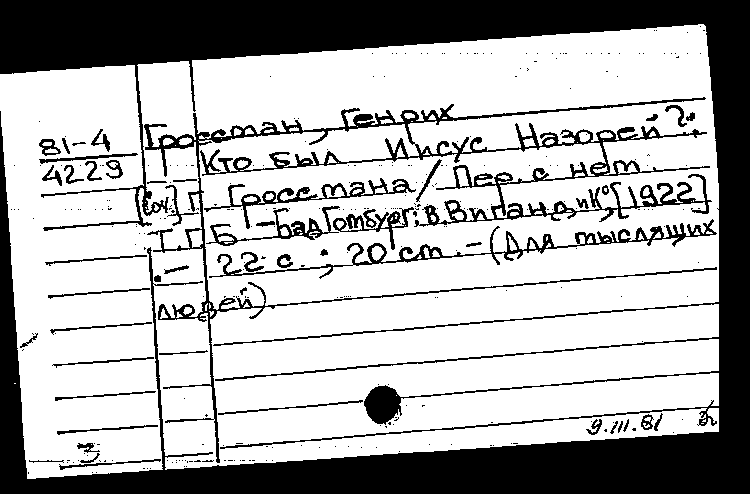 81-4
4229
Гроссман, Генрих
Кто был Иисус Назорей?:
[Соч.] Г. Гроссмана / Пер. с нем.
Т.Г.Б - Бад Гомбург: В. Виганд и К°, [1922]
.- 22 с. ; 20 см. - (Для мыслящих
людей).
3
9.III.81